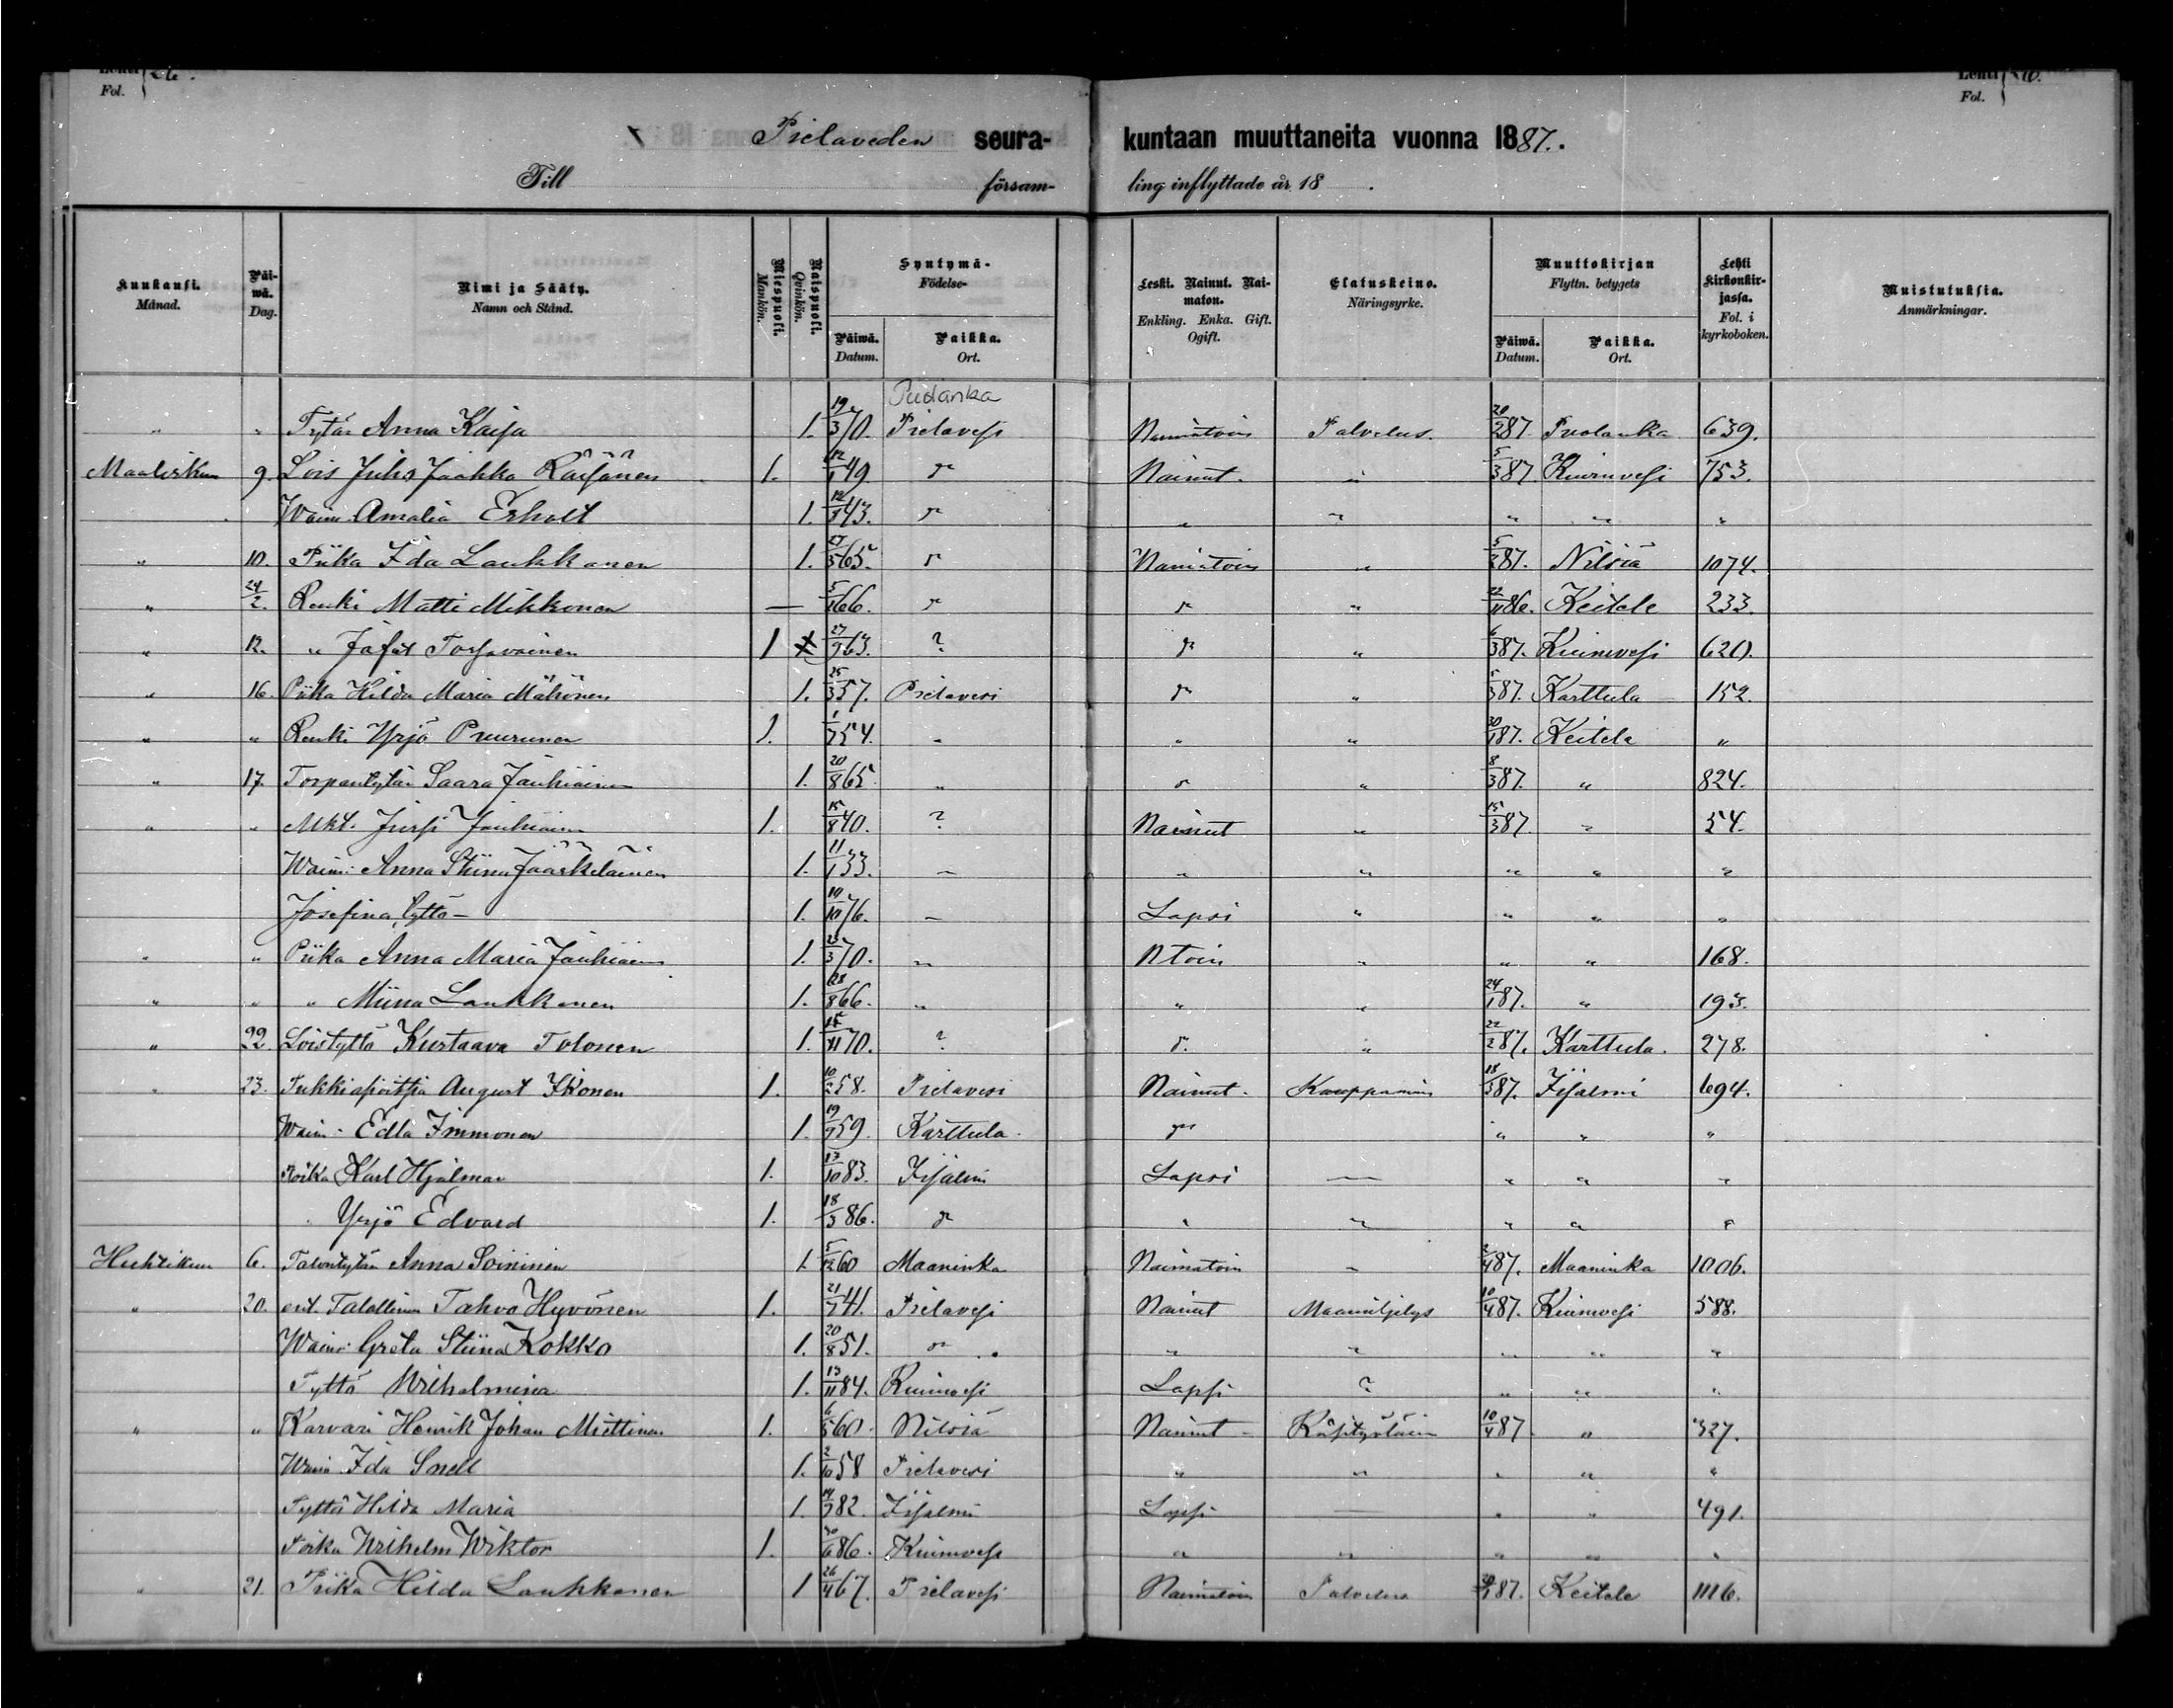 Fol.
Fol.
Pielaveden seura-kuntaan muuttaneita vuonna 1887.
Till församling inflyttade år 18 .
Kuukausi. Månad.
Päiwä. Dag.
Nimi ja Sääty. Namn och Stånd.
Miespuoli. Mankön.
Naispuoli. Qvinkön.
Syntymä- Födelse-
Päiwä. Datum.
Paikka. Ort.
Leski. Nainut. Naimaton. Enkling. Enka. Gift. Ogift.
Elatuskeino. Näringsyrke.
Muuttokirjan Flyttn. betygets
Päiwä. Datum.
Paikka. Ort.
Lehti Kirkonkirjassa. Fol. i kyrkoboken.
Muistutuksia. Anmärkningar.
" " Tytär Anna Kaisa 1. 19/3 70. Pielavesi Naimatoin Palvelus. 20/2 87. Puolanka 639.
Maaliskuu 9. Lois Juhs Jaakko Räisänen 1. 12/1 49. " Nainut. " 5/3 87. Kiuruvesi 753.
Waim. Amalia Erholt 1. 43. " " " " " "
" 10. Piika Ida Laukkanen 1. 65. " Naimatoin " 5/2 87. Nilsiä 1074.
" 24/2. Renki Matti Mikkonen — 66. " " " 22/11 86. Keitele 233.
" 12. " Jafet Torfvainen 1 27/9 63. ? " " 6/3 87. Kiuruvesi 620.
" 16. Piika Hilda Maria Mähönen 1. 25/3 57. Pielavesi " " 5/3 87. Karttula 152.
" " Renki Yrjö Puurunen 1. 1/7 54. " " " 30/1 87. Keitele "
" 17. Torpantytär Saara Jauhiainen 1. 20/8 65. " " " 8/3 87. " 824.
" " Mkt. Jauhiainen 1. 15/8 40. ? Nainut " 15/3 87. " 54.
Waim. Anna Stiina Jääskeläinen 1. 11/1 33. " " " " " "
Josefina, tyttö 1. 10/10 76. " Lapsi " " " "
" " Piika Anna Maria Jauhiainen 1. 25/3 70. " Ntoin " " " 168.
" " " Miina Laukkanen 1. 28/8 66. " " " 24/1 87. " 193.
" 22. Loistyttö Kustaava Tolonen 1. 15/11 70. ? " " 22/2 87. Karttula. 278.
" 23. Tukkiapoittja August Ikonen 1. 10/2 58. Pielavesi Nainut. Kauppamies 18/3 87. Iisalmi 694.
Waim. Edla Immonen 1. 19/9 59. Karttula. " " " "
Poika Karl Hjalmar 1. 13/10 83. Iisalmi Lapsi — " " "
" Yrjö Edvard 1. 18/3 86. " " " " " "
Huhtikuu 6. Talontytär Anna Soininen 1 5/12 60 Maaninka Naimatoin " 2/4 87. Maaninka 1006.
" 20. ent. Talollinen Tahvo Hyvönen 1. 21/7 41. Pielavesi Nainut Maanviljelys 10/4 87. Kiuruvesi 588.
Waim. Greta Stiina Kokko 1. 20/8 51. " " " " " "
Tyttö Wilhelmina 1. 13/11 84. Kiuruvesi Lapsi ? " " "
" " Karvari Henrik Johan Miettinen 1. 6/5 60. Nilsiä Nainut Käsityöläin 10/4 87 " 327.
Waim Ida Snell 1. 2/10 58 Pielavesi " " " " "
Tyttö Hilda Maria 1. 14/7 82. Iisalmi Lapsi — " " 491.
Poika Wilhelm Wiktor 1. 30/6 86. Kiuruvesi " " " " "
" 21. Piika Hilda Laukkanen 1 26/4 67. Pielavesi Naimatoin Palvelus 87. Keitele 1116.